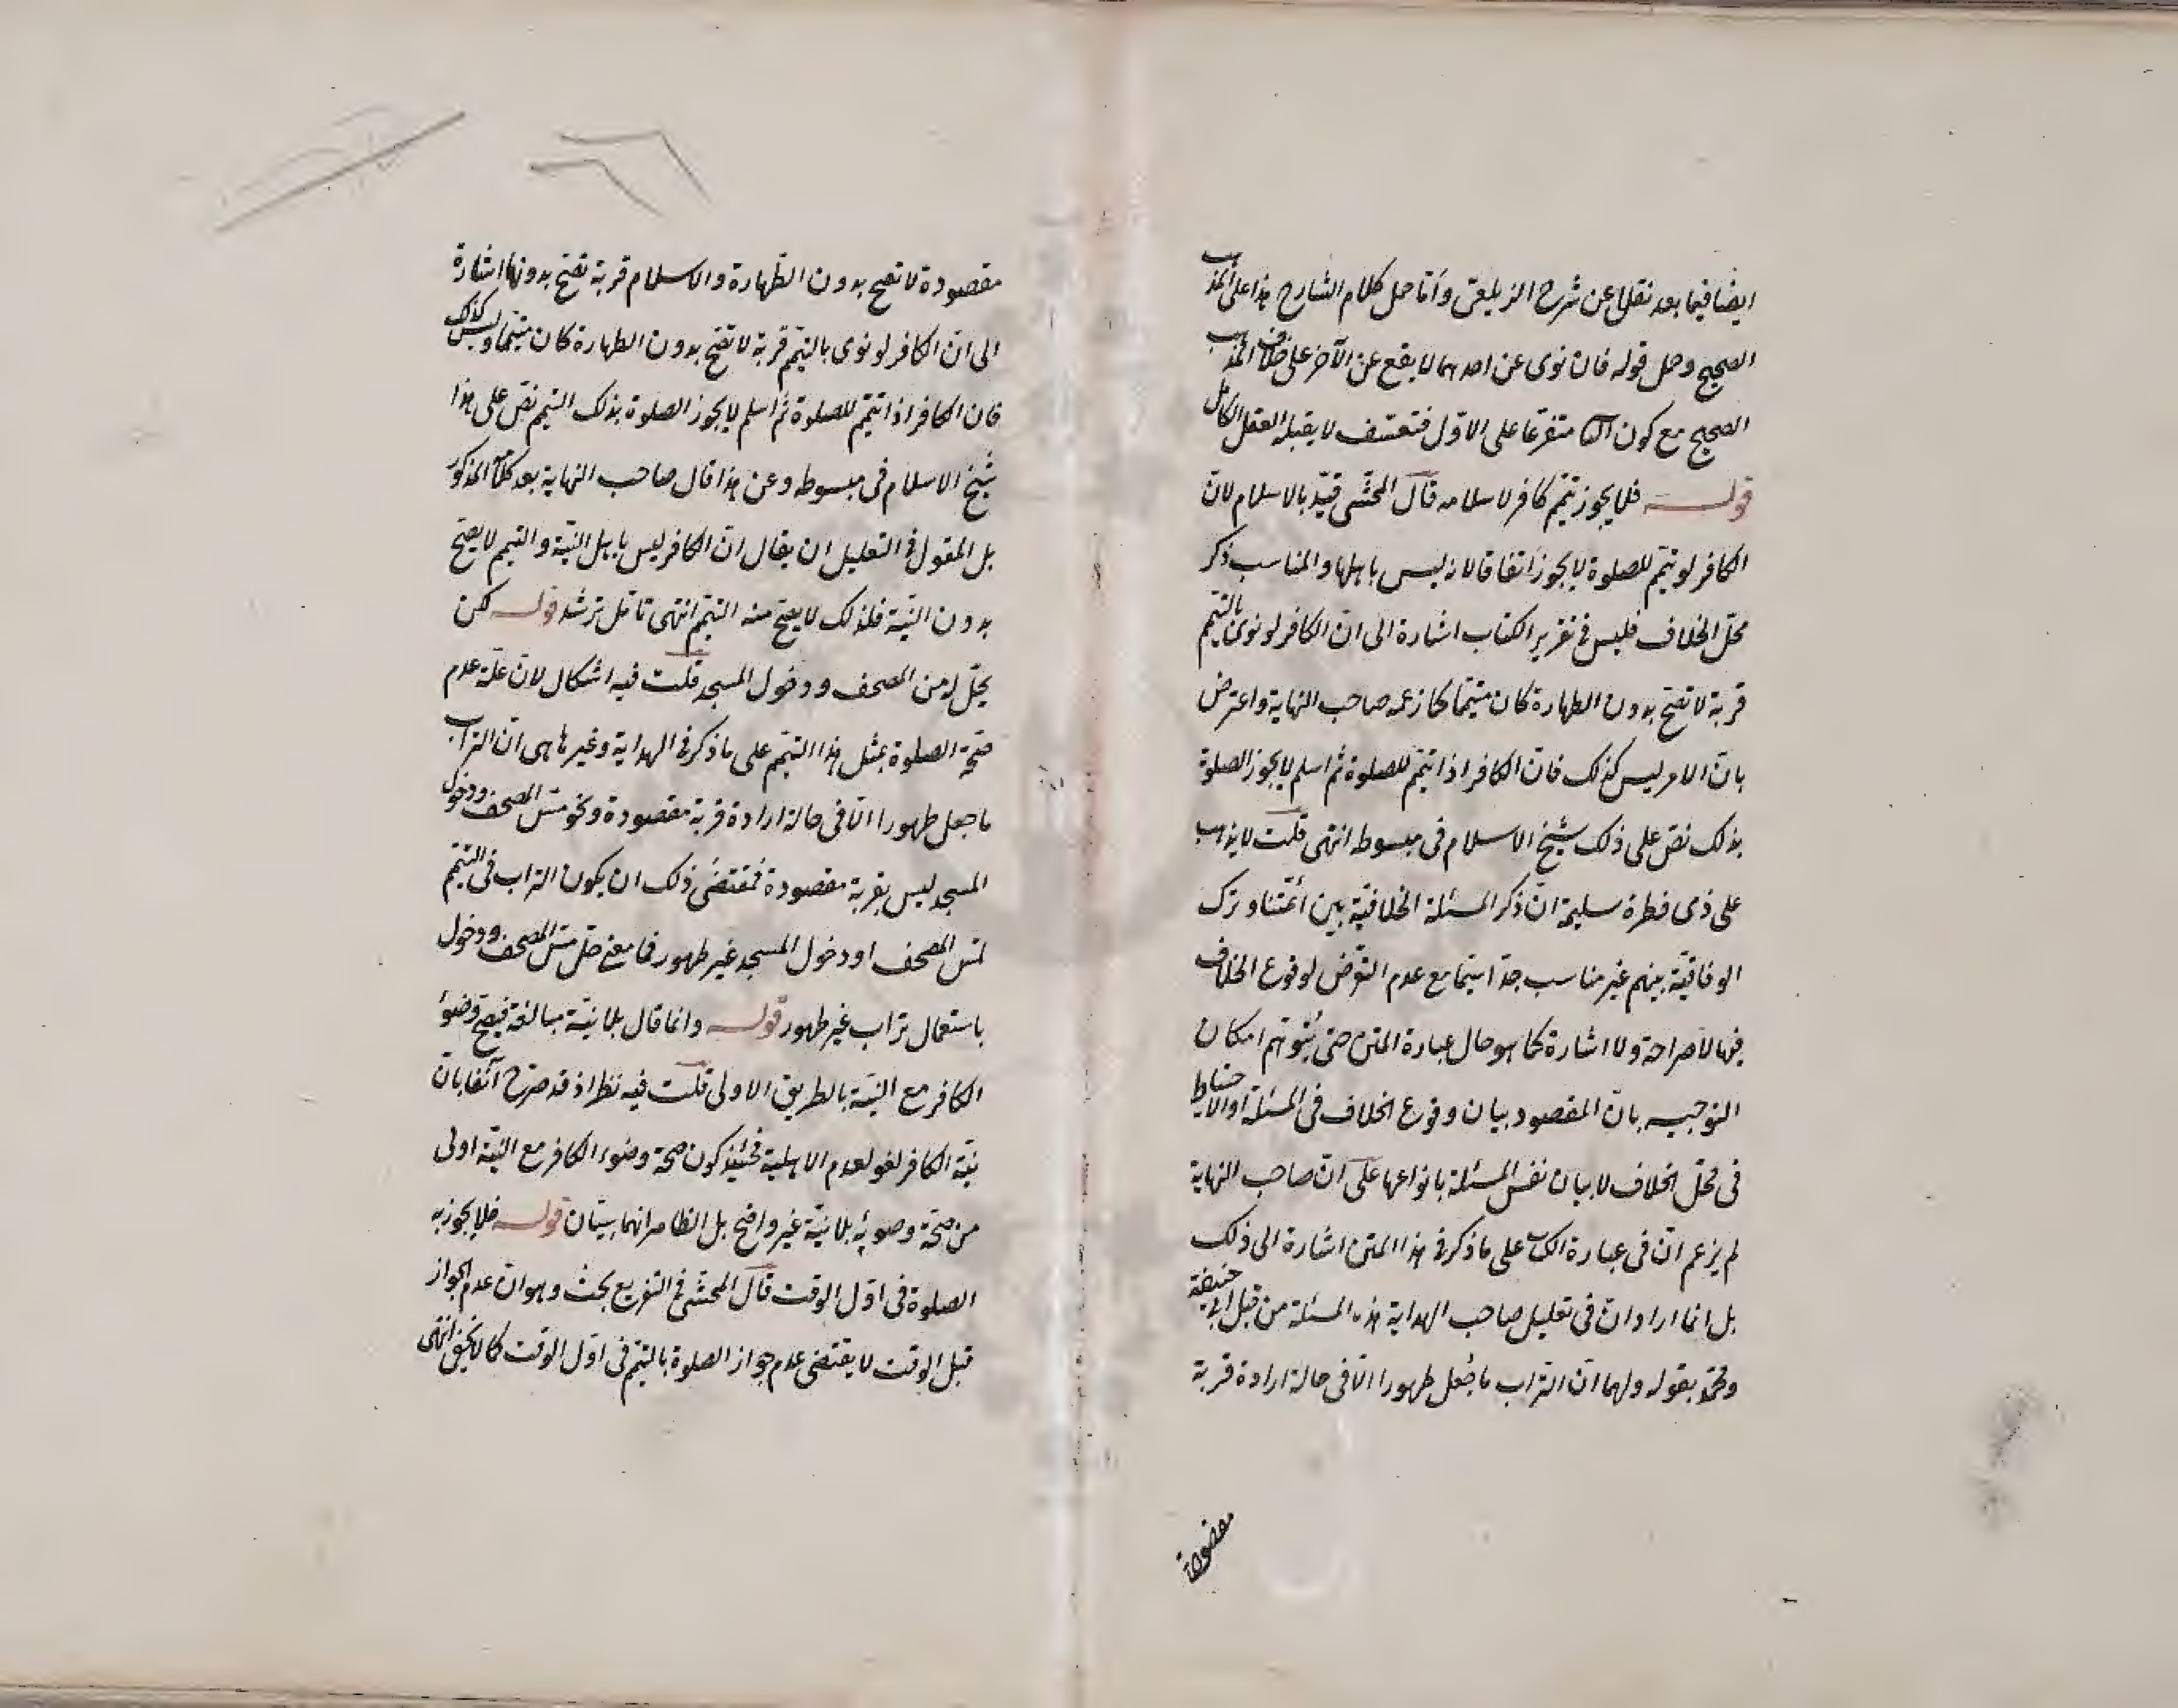 ايضا فيما بعد نقلا عن شرح الزيلعى وأما حمل كلام الشارح هذا على المذهب
الصحيح وحمل قوله فان نوى عن احدهما لا يقع عن الآخر على خلاف المذهب
الصحيح مع كون الثا متفرعا على الاول فتعسف لا يقبله العقل الكامل
قوله فلا يجوز تيمّم كافر لاسلامه قال المحشّى قيّد بالاسلام لانّ
الكافر لو تيمّم للصلوة لا يجوز اتفاقا لانه ليس باهلها والمناسب ذكر
محلّ الخلاف فليس فى تقرير الكتاب اشارة الى انّ الكافر لو نوى بالتيمّم
قربة لا تصّح بدون الطهارة كان متيمّما كما زعمه صاحب النهاية واعترض
بانّ الامر ليس كذلك فانّ الكافر اذا تيمّم للصلوة ثم اسلم لا يجوز الصلوة
بذلك نصّ على ذلك شيخ الاسلام فى مبسوطه انتهى قلت لا يذهب
على ذى فطرة سليمة انّ ذكر المسئلة الخلافيّة بين أئمّتنا وترك
الوفاقيّة بينهم غير مناسب جدّا سيّما مع عدم التعرّض لوقوع الخلاف
فيها لا صراحة ولا اشارة كما هو حال عبارة المتن حتى يُتوهّم امكان
التوجيه بانّ المقصود بيان وقوع الخلاف فى المسئلة او الاحتياط
فى محلّ الخلاف لا بيان نفس المسئلة بانواعها على انّ صاحب النهاية
لم يزعم انّ فى عبارة الكتاب على ما ذكر فى هذا المتن اشارة الى ذلك
بل انما اراد انّ فى تعليل صاحب الهداية هذه المسئلة من قبل ابى حنيفة
ومحمّد بقوله ولهما انّ التراب ما جُعل طهورا الّا فى حالة ارادة قربة
مقصودة
مقصودة لا تصح بدون الطّهارة والاسلام قربة تصّح بدونها اشارة
الى انّ الكافر لو نوى بالتيمّم قربة لا تصّح بدون الطهارة كان متيمّما وليس كذلك
فان الكافر اذا تيمّم للصلوة ثم اسلم لا يجوز الصلوة بذلك التيمم نصّ على هذا
شيخ الاسلام فى مبسوطه وعن هذا قال صاحب النهاية بعد كلامه المذكور
بل المقول فى التعليل ان يقال انّ الكافر ليس باهل النيّة والتيمم لا يصحّ
بدون النيّة فلذلك لا يصحّ منه التيمّم انتهى تأمّل ترشد قوله لكن
يحلّ له مسّ المصحف ودخول المسجد قلت فيه اشكال لانّ علّة عدم
صحّة الصلوة بمثل هذا التيمّم على ما ذكر فى الهداية وغيرها هى انّ التراب
ما جعل طهورا الّا فى حالة ارادة قربة مقصودة ونحو مسّ المصحف ودخول
المسجد ليس بقربة مقصودة فمقتضى ذلك ان يكون التراب فى التيمّم
لمسّ المصحف او دخول المسجد غير طهور فما معنى حلّ مسّ المصحف ودخول
باستعمال تراب غير طهور قوله وانما قال بلا نيّة مبالغة فيصحّ وضوء
الكافر مع النيّة بالطريق الاولى قلت فيه نظر اذ قد صرّح آنفا بانّ
نيّة الكافر لغو لعدم الاهلية فحينئذ كون صحّة وضوء الكافر مع النيّة اولى
من صحّة وضوئه بلا نيّة غير واضح بل الظاهر انهما سيّان قوله فلا يجوز به
الصلوة فى اوّل الوقت قال المحشّى فى التفريع بحث وهو ان عدم الجواز
قبل الوقت لا يقتضى عدم جواز الصلوة بالتيمّم فى اوّل الوقت كما لا يخفى انتهى